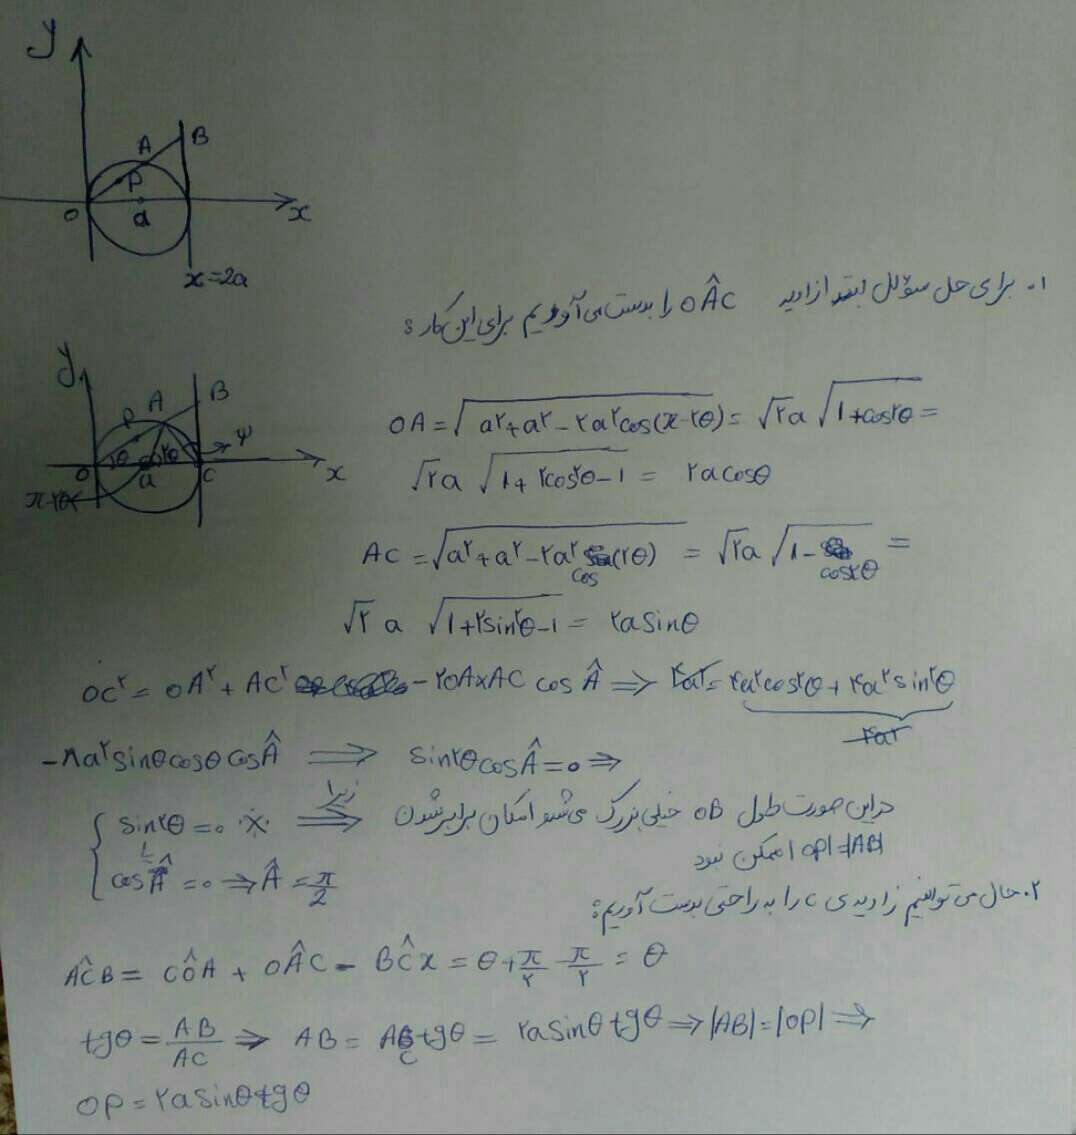 y
A B
P
O a x
x=2a
۱. برای حل سؤال ابتدا زاویه OÂC را بدست می‌آوریم برای این کار:
y
A B
P
θ ۲θ ψ
O a C x
π-۲θ
OA = √(a²+a²-۲a²cos(π-۲θ)) = √۲a √(1+cos۲θ) =
√۲a √(1+۲cos²θ-1) = ۲a cosθ
AC = √(a²+a²-۲a² cos(۲θ)) = √۲a √(1-cos۲θ) =
√۲ a √(1+۲sin²θ-1) = ۲a sinθ
OC² = OA² + AC² - ۲OA×AC cos Â ⇒ ۴a² = ۴a²cos²θ + ۴a² sin²θ
۴a²
-۸a² sinθ cosθ cosÂ ⇒ sin۲θ cosÂ = 0 ⇒
{ sin۲θ = 0 ⇒ زیرا در این صورت طول OB خیلی بزرگ می‌شو امکان برابر شدن
|OP|=|AB| ممکن نبود
یا
cosÂ = 0 ⇒ Â = π/2
۲. حال می‌توانیم زاویه‌ی C را به راحتی بدست آوریم:
AĈB = CÔA + OÂC - BĈX = θ + π/۲ - π/۲ = θ
tgθ = AB/AC ⇒ AB = AC tgθ = ۲a sinθ tgθ ⇒ |AB| = |OP| ⇒
OP = ۲a sinθ tgθ